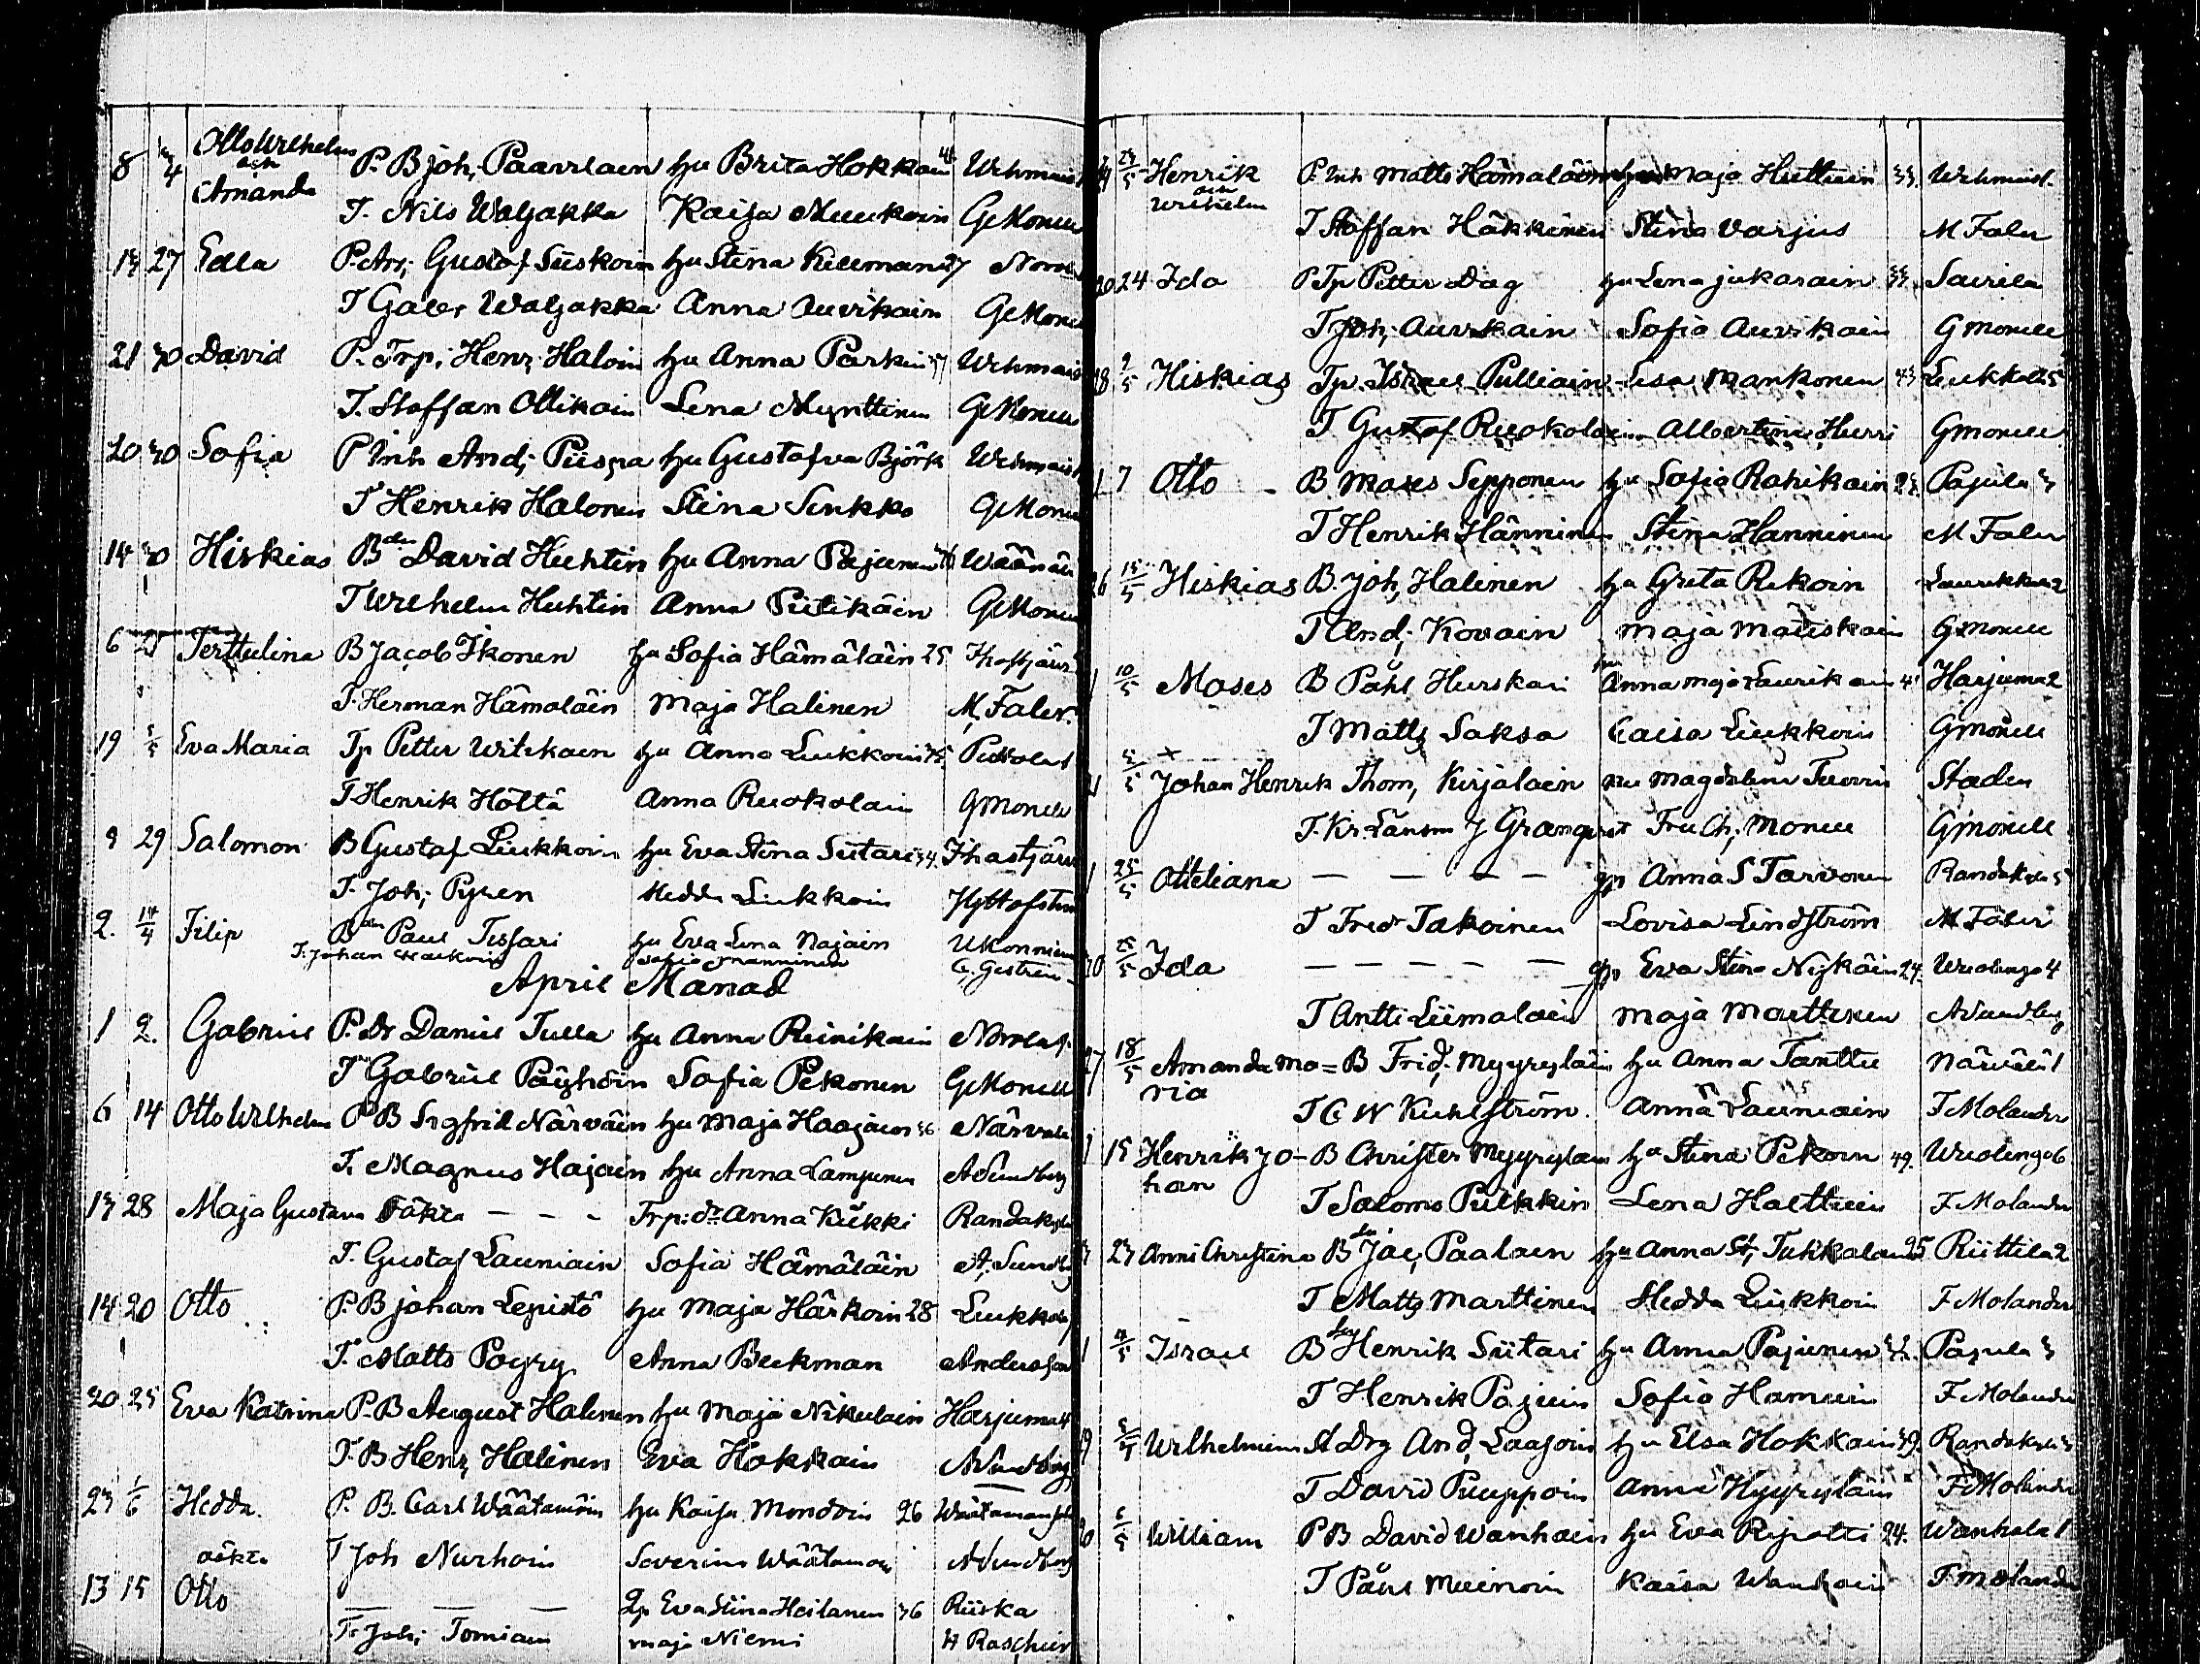 8 4 Otto Wilhelm och Amanda P. B Joh, Paavilaen hu Brita Hokkain Wehmais
T. Nils Waljakka Kaisa Muukoin G Monell
13 27 Edla P. Gustaf Siiskoin hu Stina Killman 27
T Gabr Waljakka Anna Auvikain G Monell
21 30 David P. Trp. Henr Haloin hu Anna Parkin Wehmais
T. Staffan Ollikain Lena Mynttinen G Monell
20 30 Sofia P Inh And; Piispa hu Gustafva Björk Wehmais
T Henrik Halonen Stina Sinkko G Monell
14 30 Hiskias B David Huhtin hu Anna Pajunen Wäänäi
T Wilhelm Huhtin Anna Piitikäin G Monell
6 Terttulina B Jacob Ikonen hu Sofia Hämäläin 25
T. Herman Hämäläin Maja Halinen M. Faler.
19 5/5 Eva Maria Tp Petter Witikaen hu Anna Liukkoin
T Henrik Höltä Anna Ruokolain G Monell
9 29 Salomon B Gustaf Liukkoin hu Eva Stina Siitari 34.
T. Joh; Pyren Hedda Liukkoin
2. 14/4 Filip B Paul Tissari hu Eva Lena Najain Ukonniem
T. Johan Sofia Manninen G. Geströn
April Månad
1 2. Gabriel P. Dr Daniel Tulla hu Anna Reinikain
T Gabriel Päyhöin Sofia Pekonen G Monell
6 14 Otto Wilhelm P B Sigfrid Närväin hu Maja Haajain 36 Närvälä
T. Magnus Hajain hu Anna Lampinen A Sundberg
13 28 Maja Gustava oäkta — — — Trp: dr Anna Kukki Randakylä
T. Gustaf Launiain Sofia Hämäläin A. Sundb
14 20 Otto P. B Johan Lepistö hu Maja Härkoin 28 Liukkola
T. Matts Pöyry Anna Beckman Anderson
20 25 Eva Katrina P. B August Halinen hu Maja Nikulain Harjuma 4
T. B Henr Halinen Eva Hokkain A Sundberg
23 1/6 Hedda. P. B. Carl Wäätamöin hu Kaisa Mondoin 26
T Joh Nurhoin Severina Wäätamoin A Sundberg
13 15 oäkta Otto — — — Qp Eva Stina Heilanen 36 Riiska
T. Joh; Tomiain Maja Niemi H Raschier
24/5 Henrik och Wilhelm P. Inh Matts Hämäläin hu Maja Huttuin 33. Wehmais
T Staffan Häkkinen Stina Varjus M Faler
20 24 Ida P Tp Petter Dag hu Lena Jukarain 33. Sairila
T Joh; Auvikain Sofia Auvikain G Monell
18 9/5 Hiskias Tp. Israel Pulliain Lisa Mankonen 43 Liukkola 5
T Gustaf Ruokolain Albertina Hurri G Monell
1 7 Otto B Moses Sepponen hu Sofia Rahikain Pajula 3
T Henrik Hänninen Stina Hänninen M Faler
26 15/5 Hiskias B. Joh, Halinen hu Greta Rekoin Laurikkala 2
T And; Kovain Maja Mauskain G Monell
1 10/5 Moses B Påhl Hurskain hu Anna Maja Laurikain 41 Harjuma 2
T Matts Saksa Caisa Liukkoin G Monell
21 5/5 Johan Henrik Thom, Kirjalain Magdalena Tuovin Staden
T. Kr: Länsm J Granqvist Fru Ch; Monell G Monell
1 25/5 Otteliana — — — — qp Anna S Tarvonen Randakylä 5
T Fredr Takoinen Lovisa Lindström M Faler
20 25/5 Ida — — — — — qp Eva Stina Nykäin 24. Wuolingo 4
T Antti Liimatain Maja Marttinen A Sundberg
27 18/5 Amanda Ma=ria B Frid; Myyryläin hu Anna Tanttu Närvälä 1
T C W Kuhlström. Anna Launiain F Molander
1 15 Henrik Jo-han B Christer Myyryläin hu Stina Pekoin 49. Wuolingo 6
T Salomo Pulkkin Lena Halttuin F Molander
23 Anni Christina B Jac, Paalain hu Anna St; Tukkalain 25 Riittilä 2
T Matts Marttinen Hedda Liukkoin F Molander
1 4/5 Israel B Henrik Siitari hu Anna Pajunen 32. Pajula 3
T Henrik Pajuin Sofia Hamuin F Molander
19 5/5 Wilhelmina A Drg And, Laasoin hu Elsa Hokkain 39. Randakylä
T David Puuppoin Anna Hyyryläin F Molander
20 6/5 William P B David Wanhain hu Eva Ripatti 24. Wanhala 1
T Paul Muinoin Kaisa Wanhain F. Molander